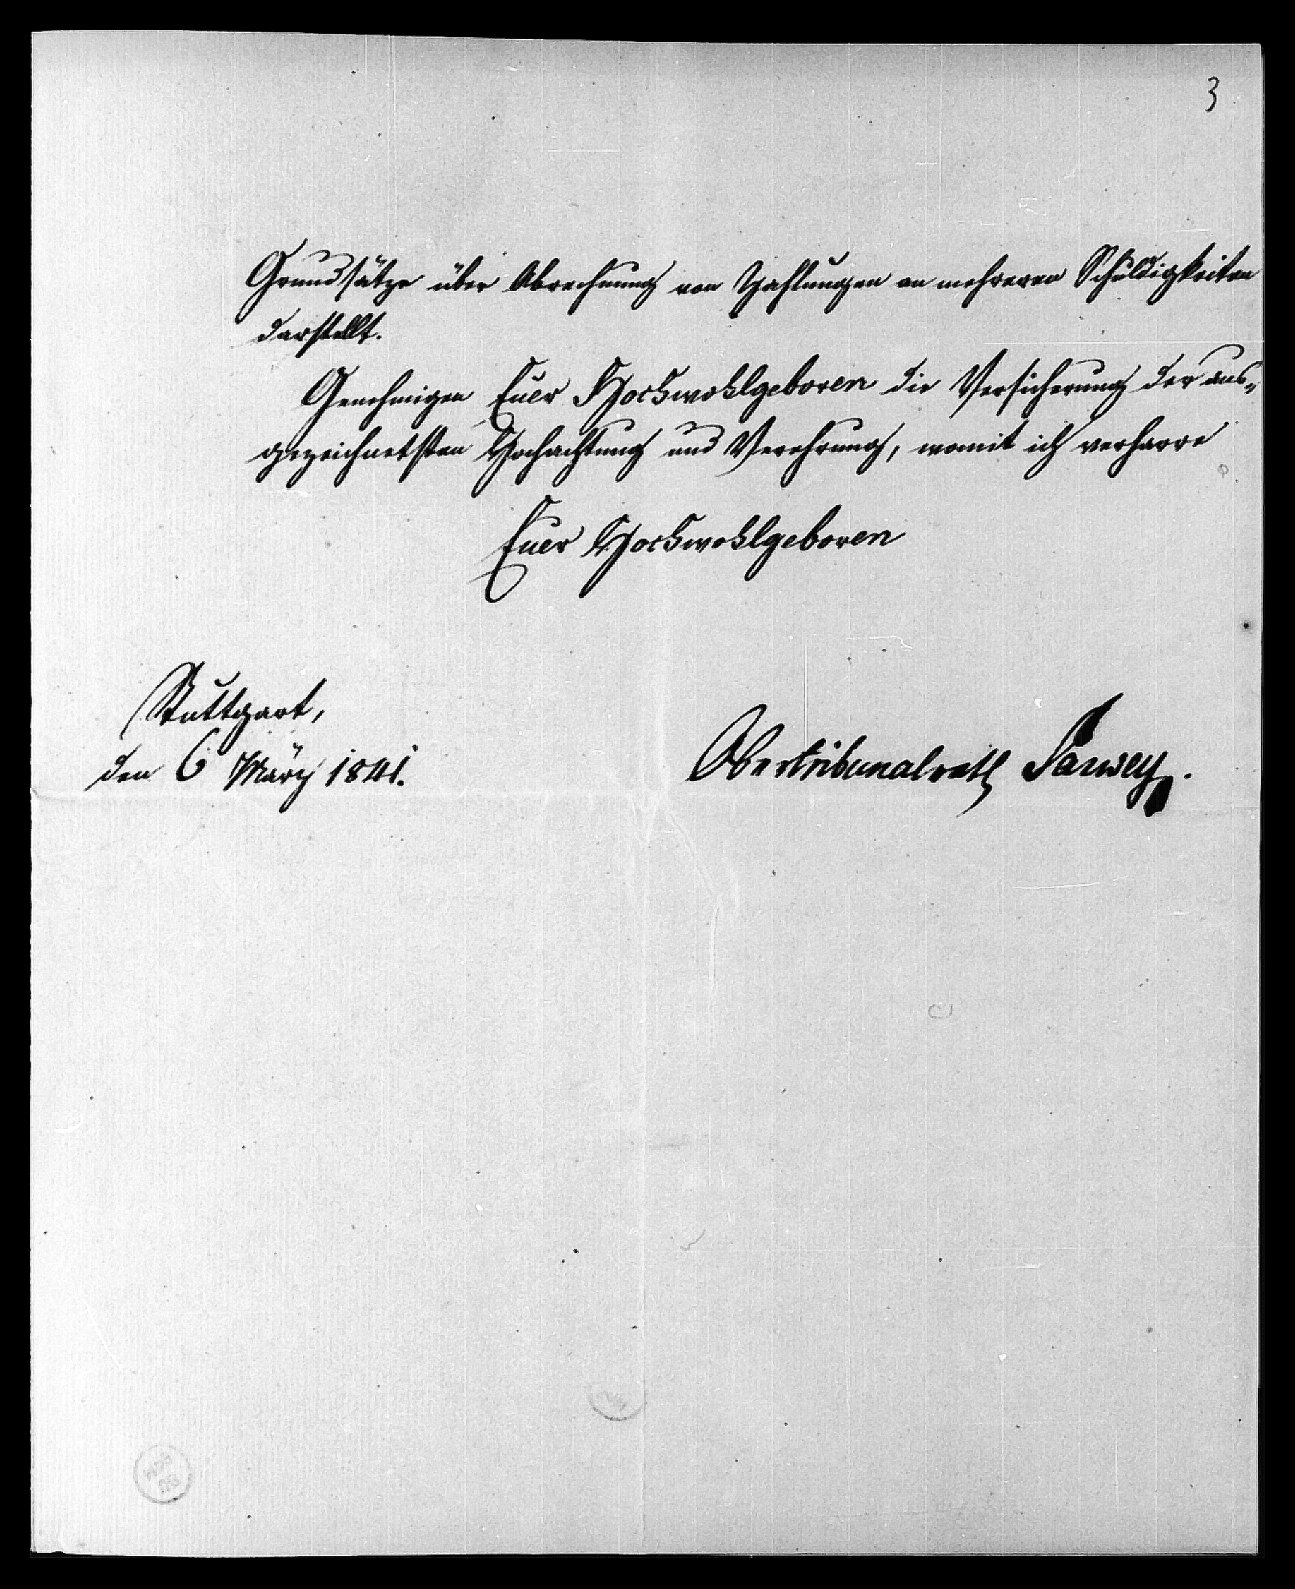 3
Grundsätze über Abrechnung von Zahlungen an mehreren Schuldigkeiten
darstellt.
Genehmigen Euer Hochwohlgeboren die Versicherung der aus-
gezeichnetsten Hochachtung und Verehrung, womit ich verharre
Euer Hochwohlgeboren
Stuttgart,
den 6 März 1841.
Obertribunalrath Sarwey.